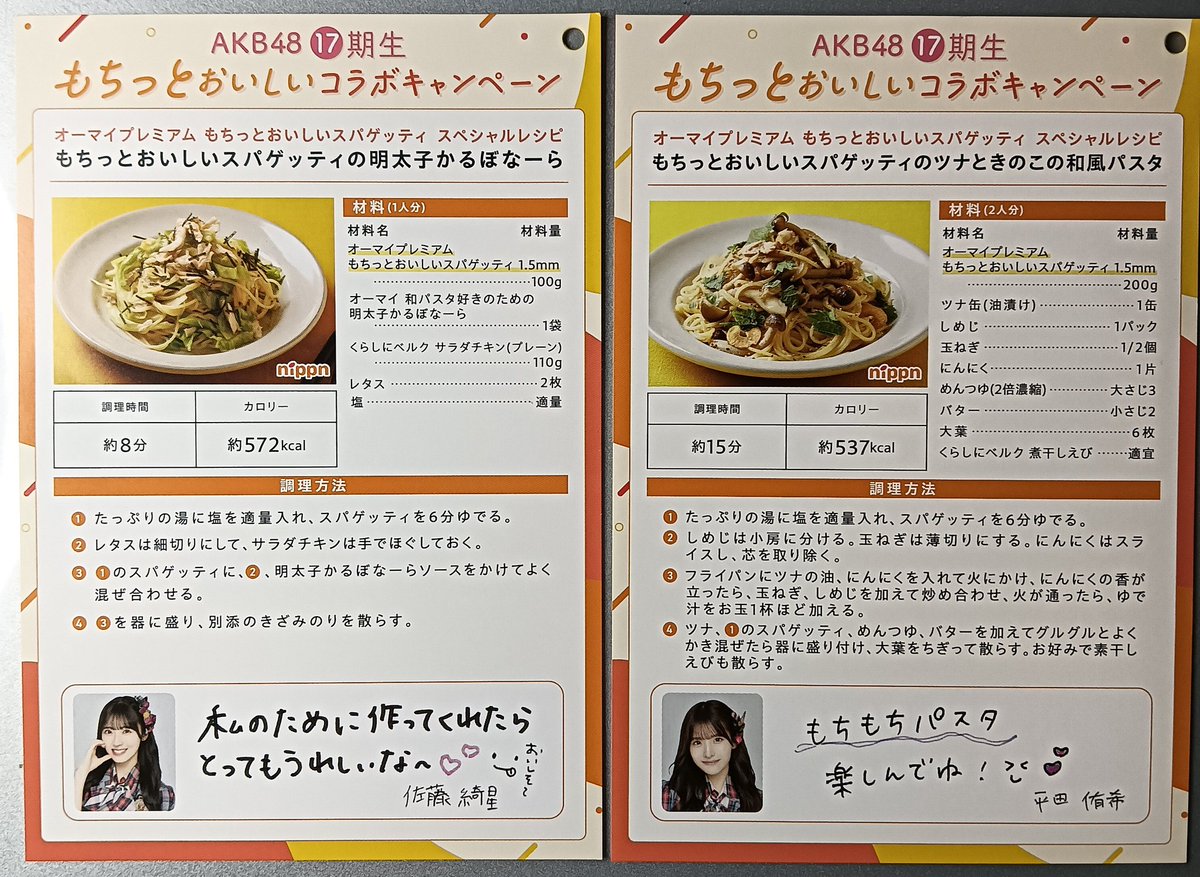 AKB48 17期生
もちっとおいしいコラボキャンペーン
オーマイプレミアム もちっとおいしいスパゲッティ スペシャルレシピ
もちっとおいしいスパゲッティの明太子かるぼなーら
nippn
材料(1人分)
材料名 材料量
オーマイプレミアム
もちっとおいしいスパゲッティ1.5mm
100g
オーマイ 和パスタ好きのための
明太子かるぼなーら
1袋
くらしにベルク サラダチキン(プレーン)
110g
レタス 2枚
塩 適量
調理時間 カロリー
約8分 約572kcal
調理方法
1 たっぷりの湯に塩を適量入れ、スパゲッティを6分ゆでる。
2 レタスは細切りにして、サラダチキンは手でほぐしておく。
3 1のスパゲッティに、2、明太子かるぼなーらソースをかけてよく
混ぜ合わせる。
4 3を器に盛り、別添のきざみのりを散らす。
私のために作ってくれたら
とってもうれしいな〜
おいしそ〜
佐藤 綺星
AKB48 17期生
もちっとおいしいコラボキャンペーン
オーマイプレミアム もちっとおいしいスパゲッティ スペシャルレシピ
もちっとおいしいスパゲッティのツナときのこの和風パスタ
nippn
材料(2人分)
材料名 材料量
オーマイプレミアム
もちっとおいしいスパゲッティ1.5mm
200g
ツナ缶(油漬け) 1缶
しめじ 1パック
玉ねぎ 1/2個
にんにく 1片
めんつゆ(2倍濃縮) 大さじ3
バター 小さじ2
大葉 6枚
くらしにベルク 煮干しえび 適宜
調理時間 カロリー
約15分 約537kcal
調理方法
1 たっぷりの湯に塩を適量入れ、スパゲッティを6分ゆでる。
2 しめじは小房に分ける。玉ねぎは薄切りにする。にんにくはスラ
イスし、芯を取り除く。
3 フライパンにツナの油、にんにくを入れて火にかけ、にんにくの香が
立ったら、玉ねぎ、しめじを加えて炒め合わせ、火が通ったら、ゆで
汁をお玉1杯ほど加える。
4 ツナ、1のスパゲッティ、めんつゆ、バターを加えてグルグルとよく
かき混ぜたら器に盛り付け、大葉をちぎって散らす。お好みで素干し
えびも散らす。
もちもちパスタ
楽しんでね!
平田 侑希